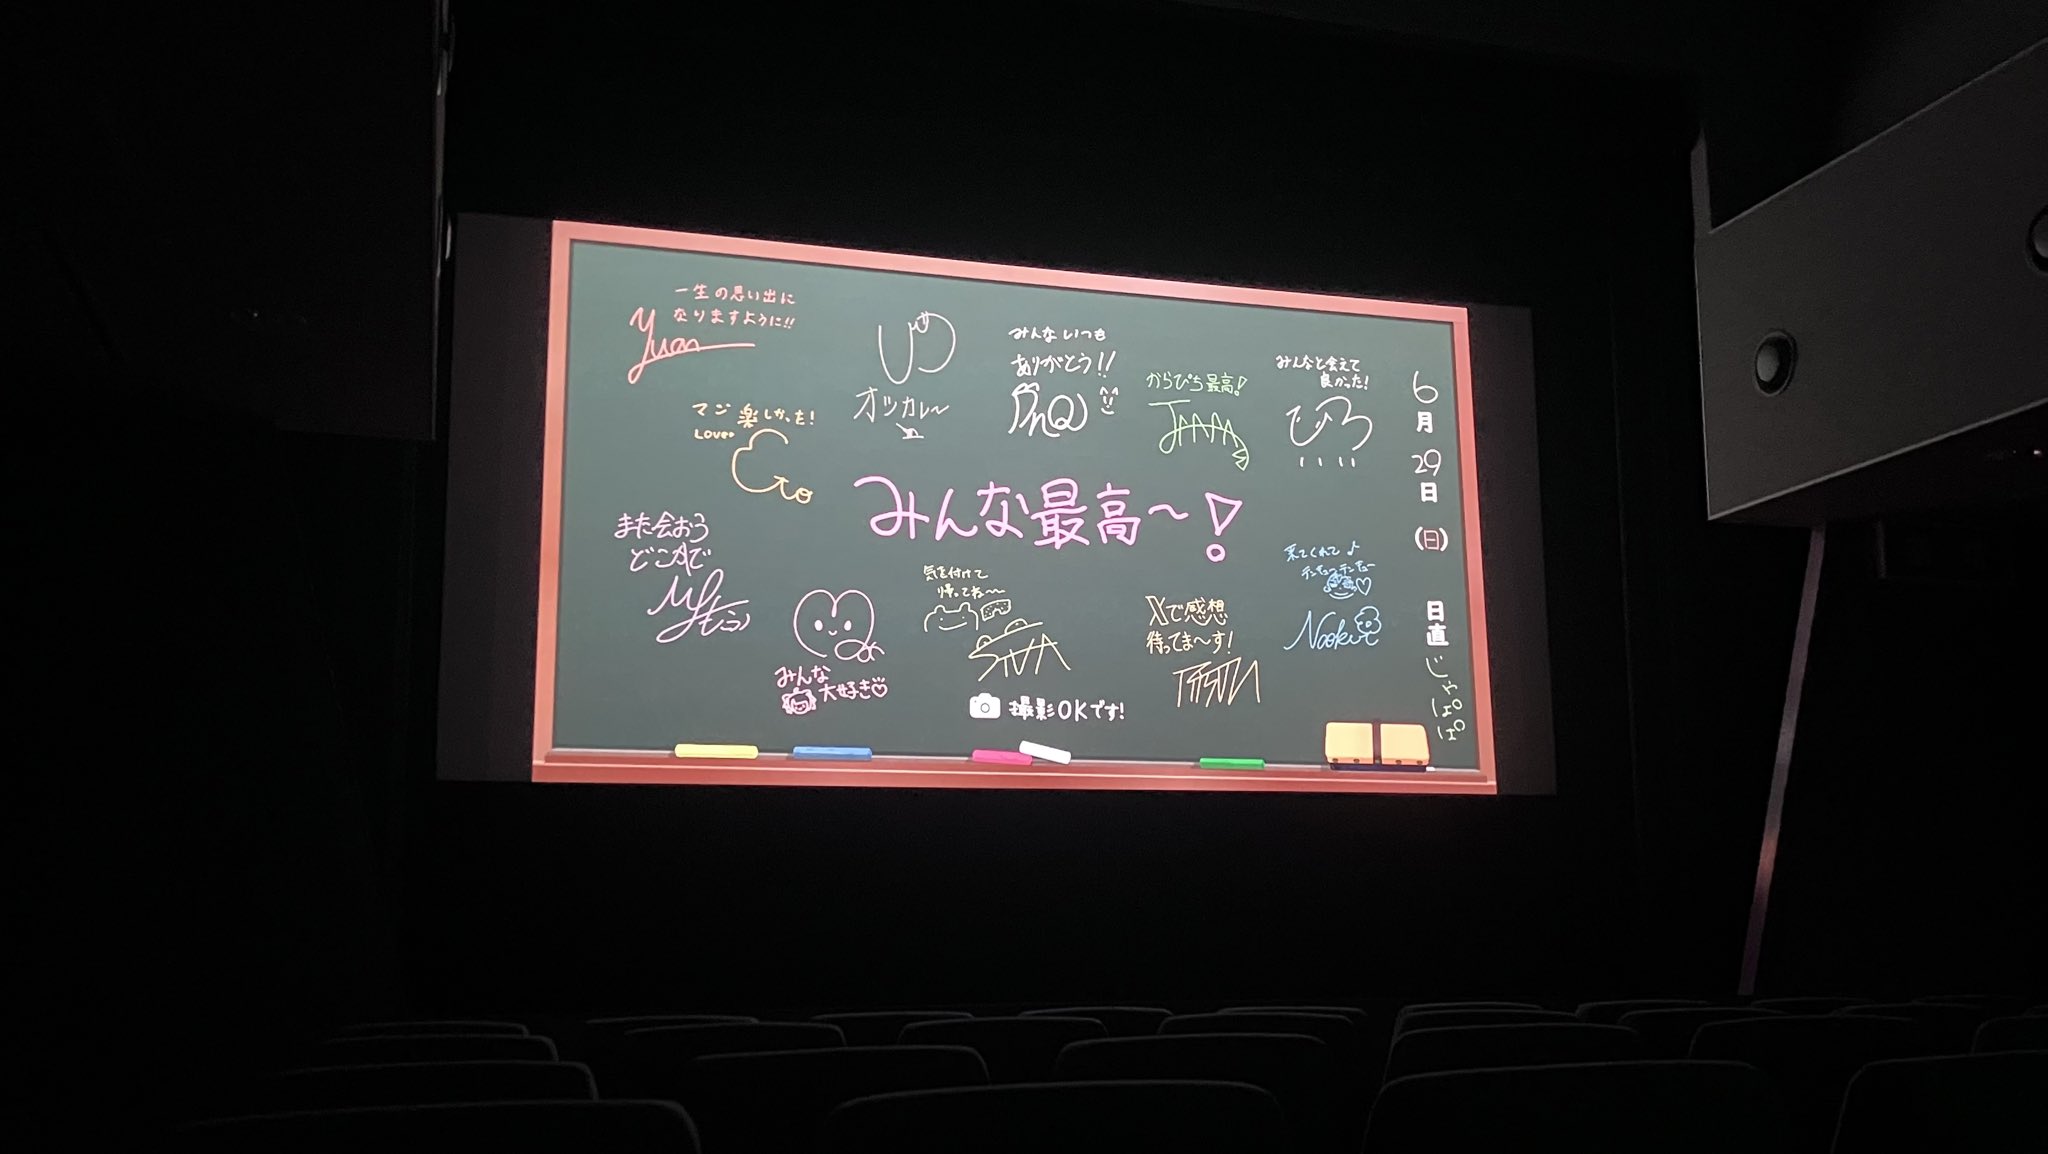 一生の思い出に
なりますように!!
Yuan
オツカレ〜
みんないつも
ありがとう!!
からぴち最高!
みんなと会えて
良かった!
ひろ
マジ楽しかった!
LOVE♥
Eto
みんな最高〜!
6
月
29
日
(日)
また会おう
どこかで
気を付けて
帰ってね〜
SIVA
Xで感想
待ってま〜す!
来てくれて♪
テンキューテンキュー
Naokiri
みんな
大好き♡
撮影OKです!
日
直
じゃぱぱ